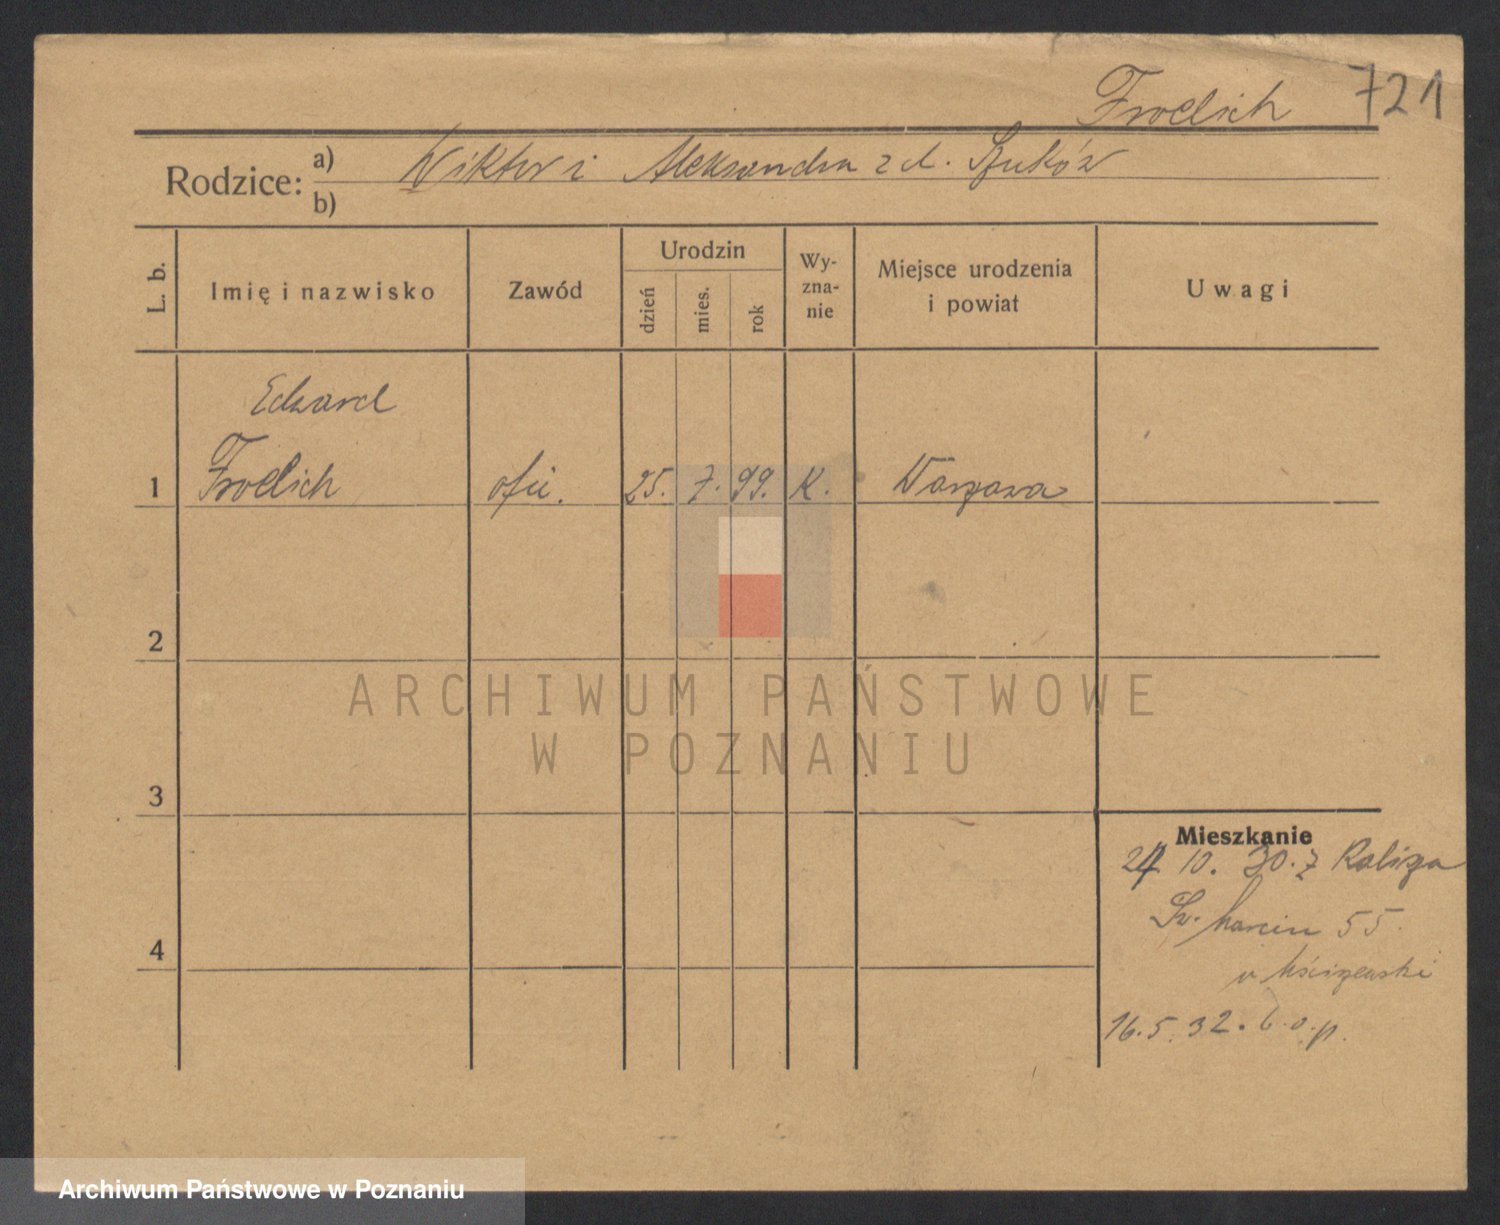 Froelich 721
Rodzice: a) Wiktor i Aleksandra z d.
b)
L. b.
Imię i nazwisko
Zawód
Urodzin
dzień
mies.
rok
Wy-
zna-
nie
Miejsce urodzenia
i powiat
Uwagi
Edward
1 Froelich ofic. 25. 7. 99. K. Warszawa
2
ARCHIWUM PAŃSTWOWE
W POZNANIU
3
Mieszkanie
10. 30. z Kalisza
Św. Marcin 55.
4
u
16. 5. 32. b.o.p.
Archiwum Państwowe w Poznaniu